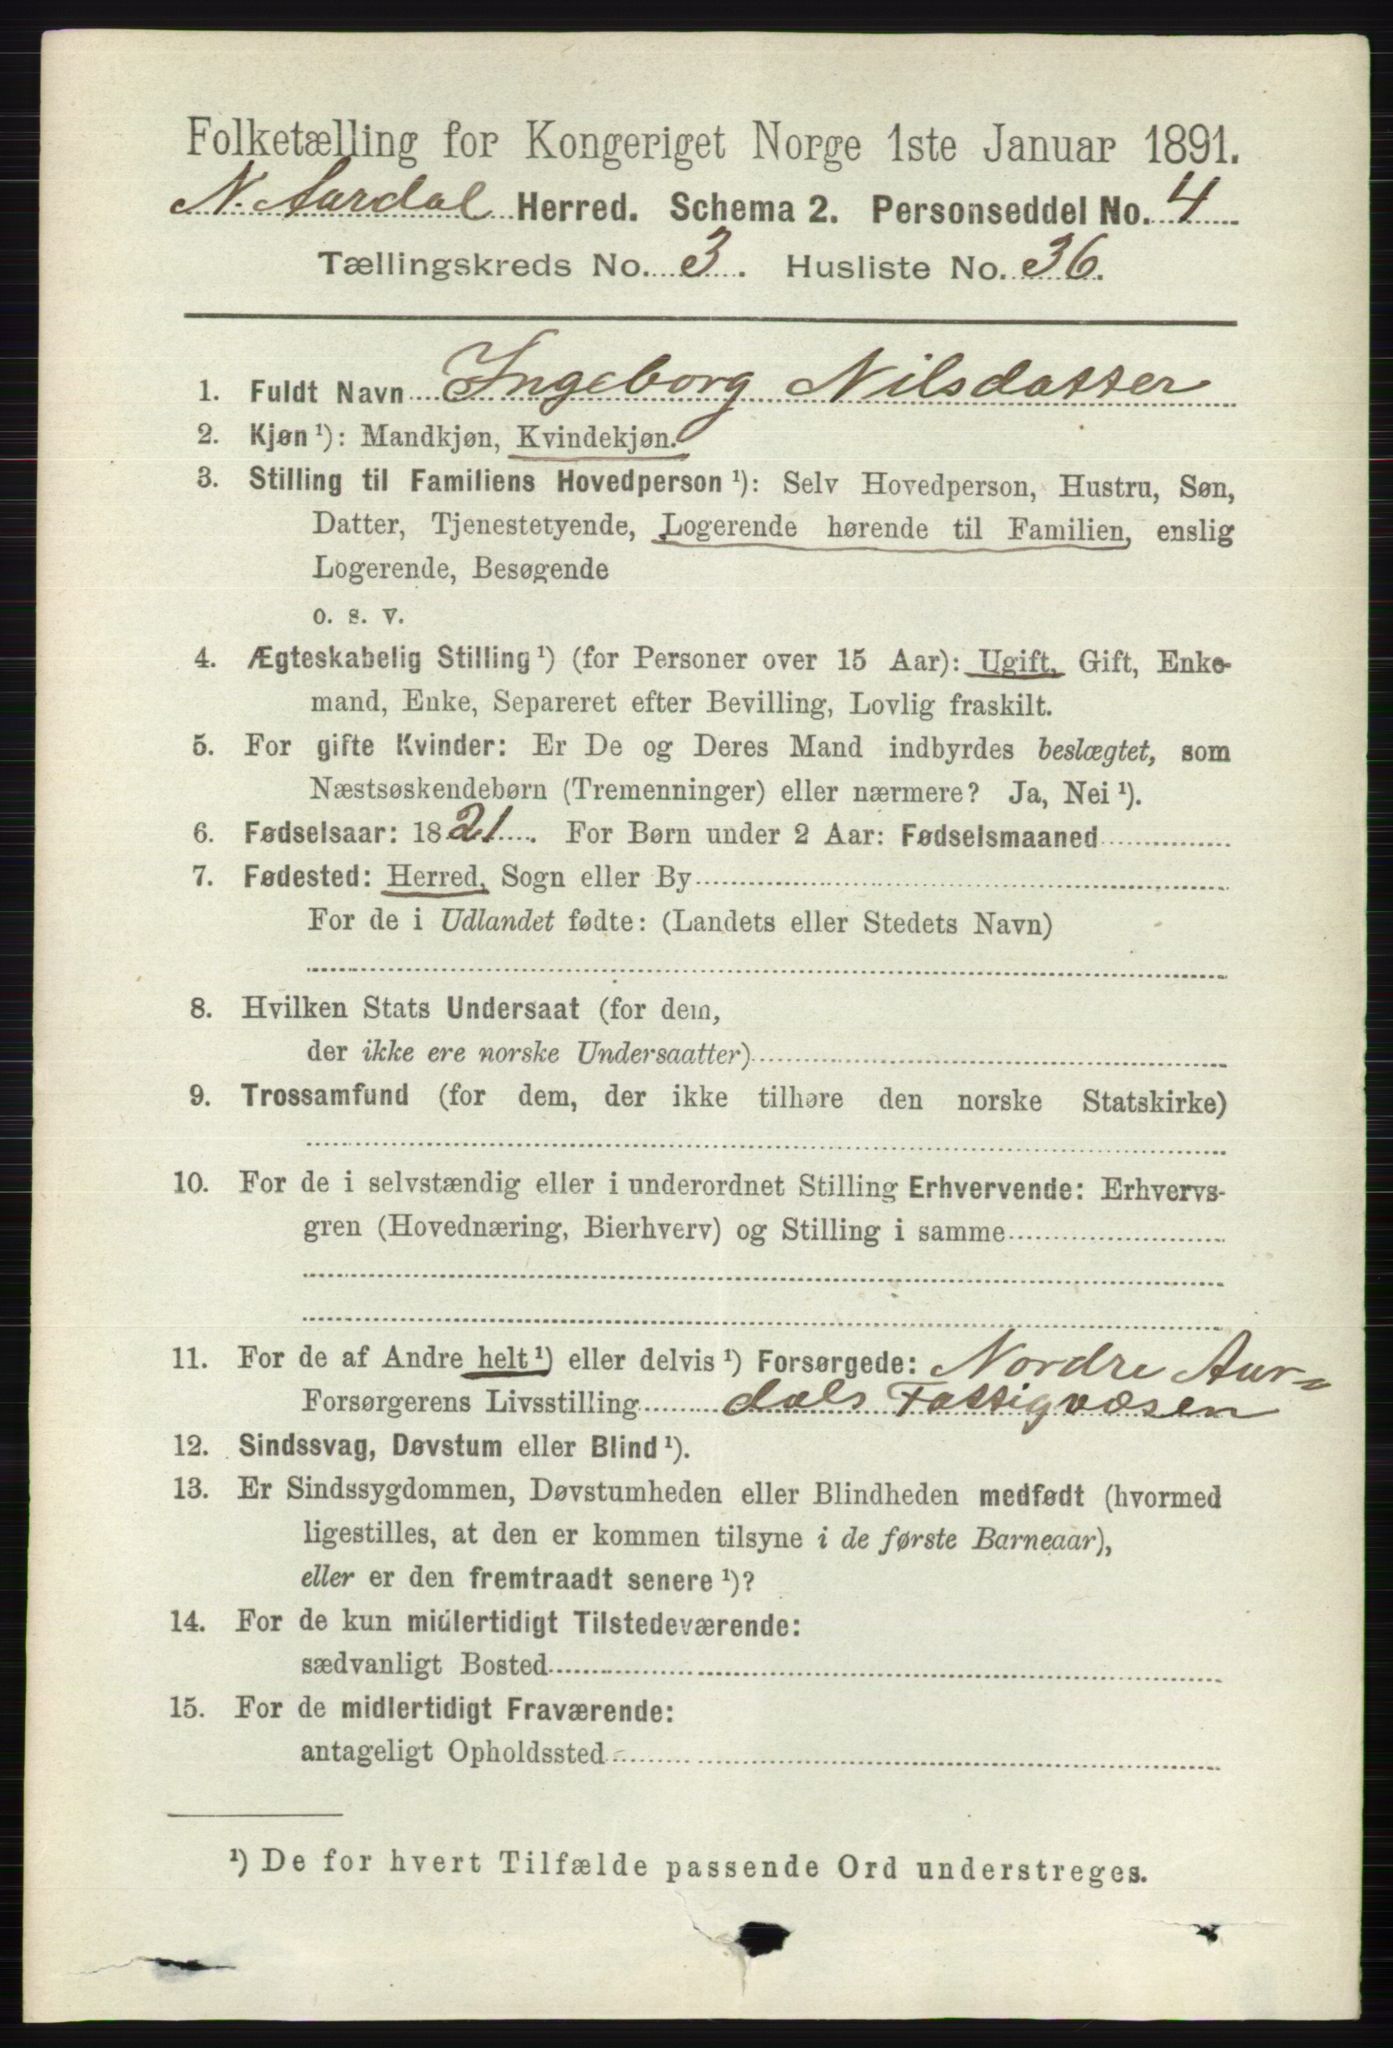 Folketælling for Kongeriget Norge 1ste Januar 1891.
N. Aurdal Herred. Schema 2. Personseddel No. 4
Tællingskreds No. 3. Husliste No. 36.
1. Fuldt Navn Ingeborg Nilsdatter
2. Kjøn ¹): Mandkjøn, Kvindekjøn.
3. Stilling til Familiens Hovedperson ¹): Selv Hovedperson, Hustru, Søn,
Datter, Tjenestetyende, Logerende hørende til Familien, enslig
Logerende, Besøgende
o. s. v.
4. Ægteskabelig Stilling ¹) (for Personer over 15 Aar): Ugift, Gift, Enke-
mand, Enke, Separeret efter Bevilling, Lovlig fraskilt.
5. For gifte Kvinder: Er De og Deres Mand indbyrdes beslægtet, som
Næstsøskendebørn (Tremenninger) eller nærmere? Ja, Nei ¹).
6. Fødselsaar: 1821. For Børn under 2 Aar: Fødselsmaaned
7. Fødested: Herred, Sogn eller By
For de i Udlandet fødte: (Landets eller Stedets Navn)
8. Hvilken Stats Undersaat (for dem,
der ikke ere norske Undersaatter)
9. Trossamfund (for dem, der ikke tilhøre den norske Statskirke)
10. For de i selvstændig eller i underordnet Stilling Erhvervende: Erhvervs-
gren (Hovednæring, Bierhverv) og Stilling i samme
11. For de af Andre helt ¹) eller delvis ¹) Forsørgede: Nordre Aur-
Forsørgerens Livsstilling dals Fattigvæsen
12. Sindssvag, Døvstum eller Blind ¹).
13. Er Sindssygdommen, Døvstumheden eller Blindheden medfødt (hvormed
ligestilles, at den er kommen tilsyne i de første Barneaar),
eller er den fremtraadt senere ¹)?
14. For de kun midlertidigt Tilstedeværende:
sædvanligt Bosted
15. For de midlertidigt Fraværende:
antageligt Opholdssted
¹) De for hvert Tilfælde passende Ord understreges.